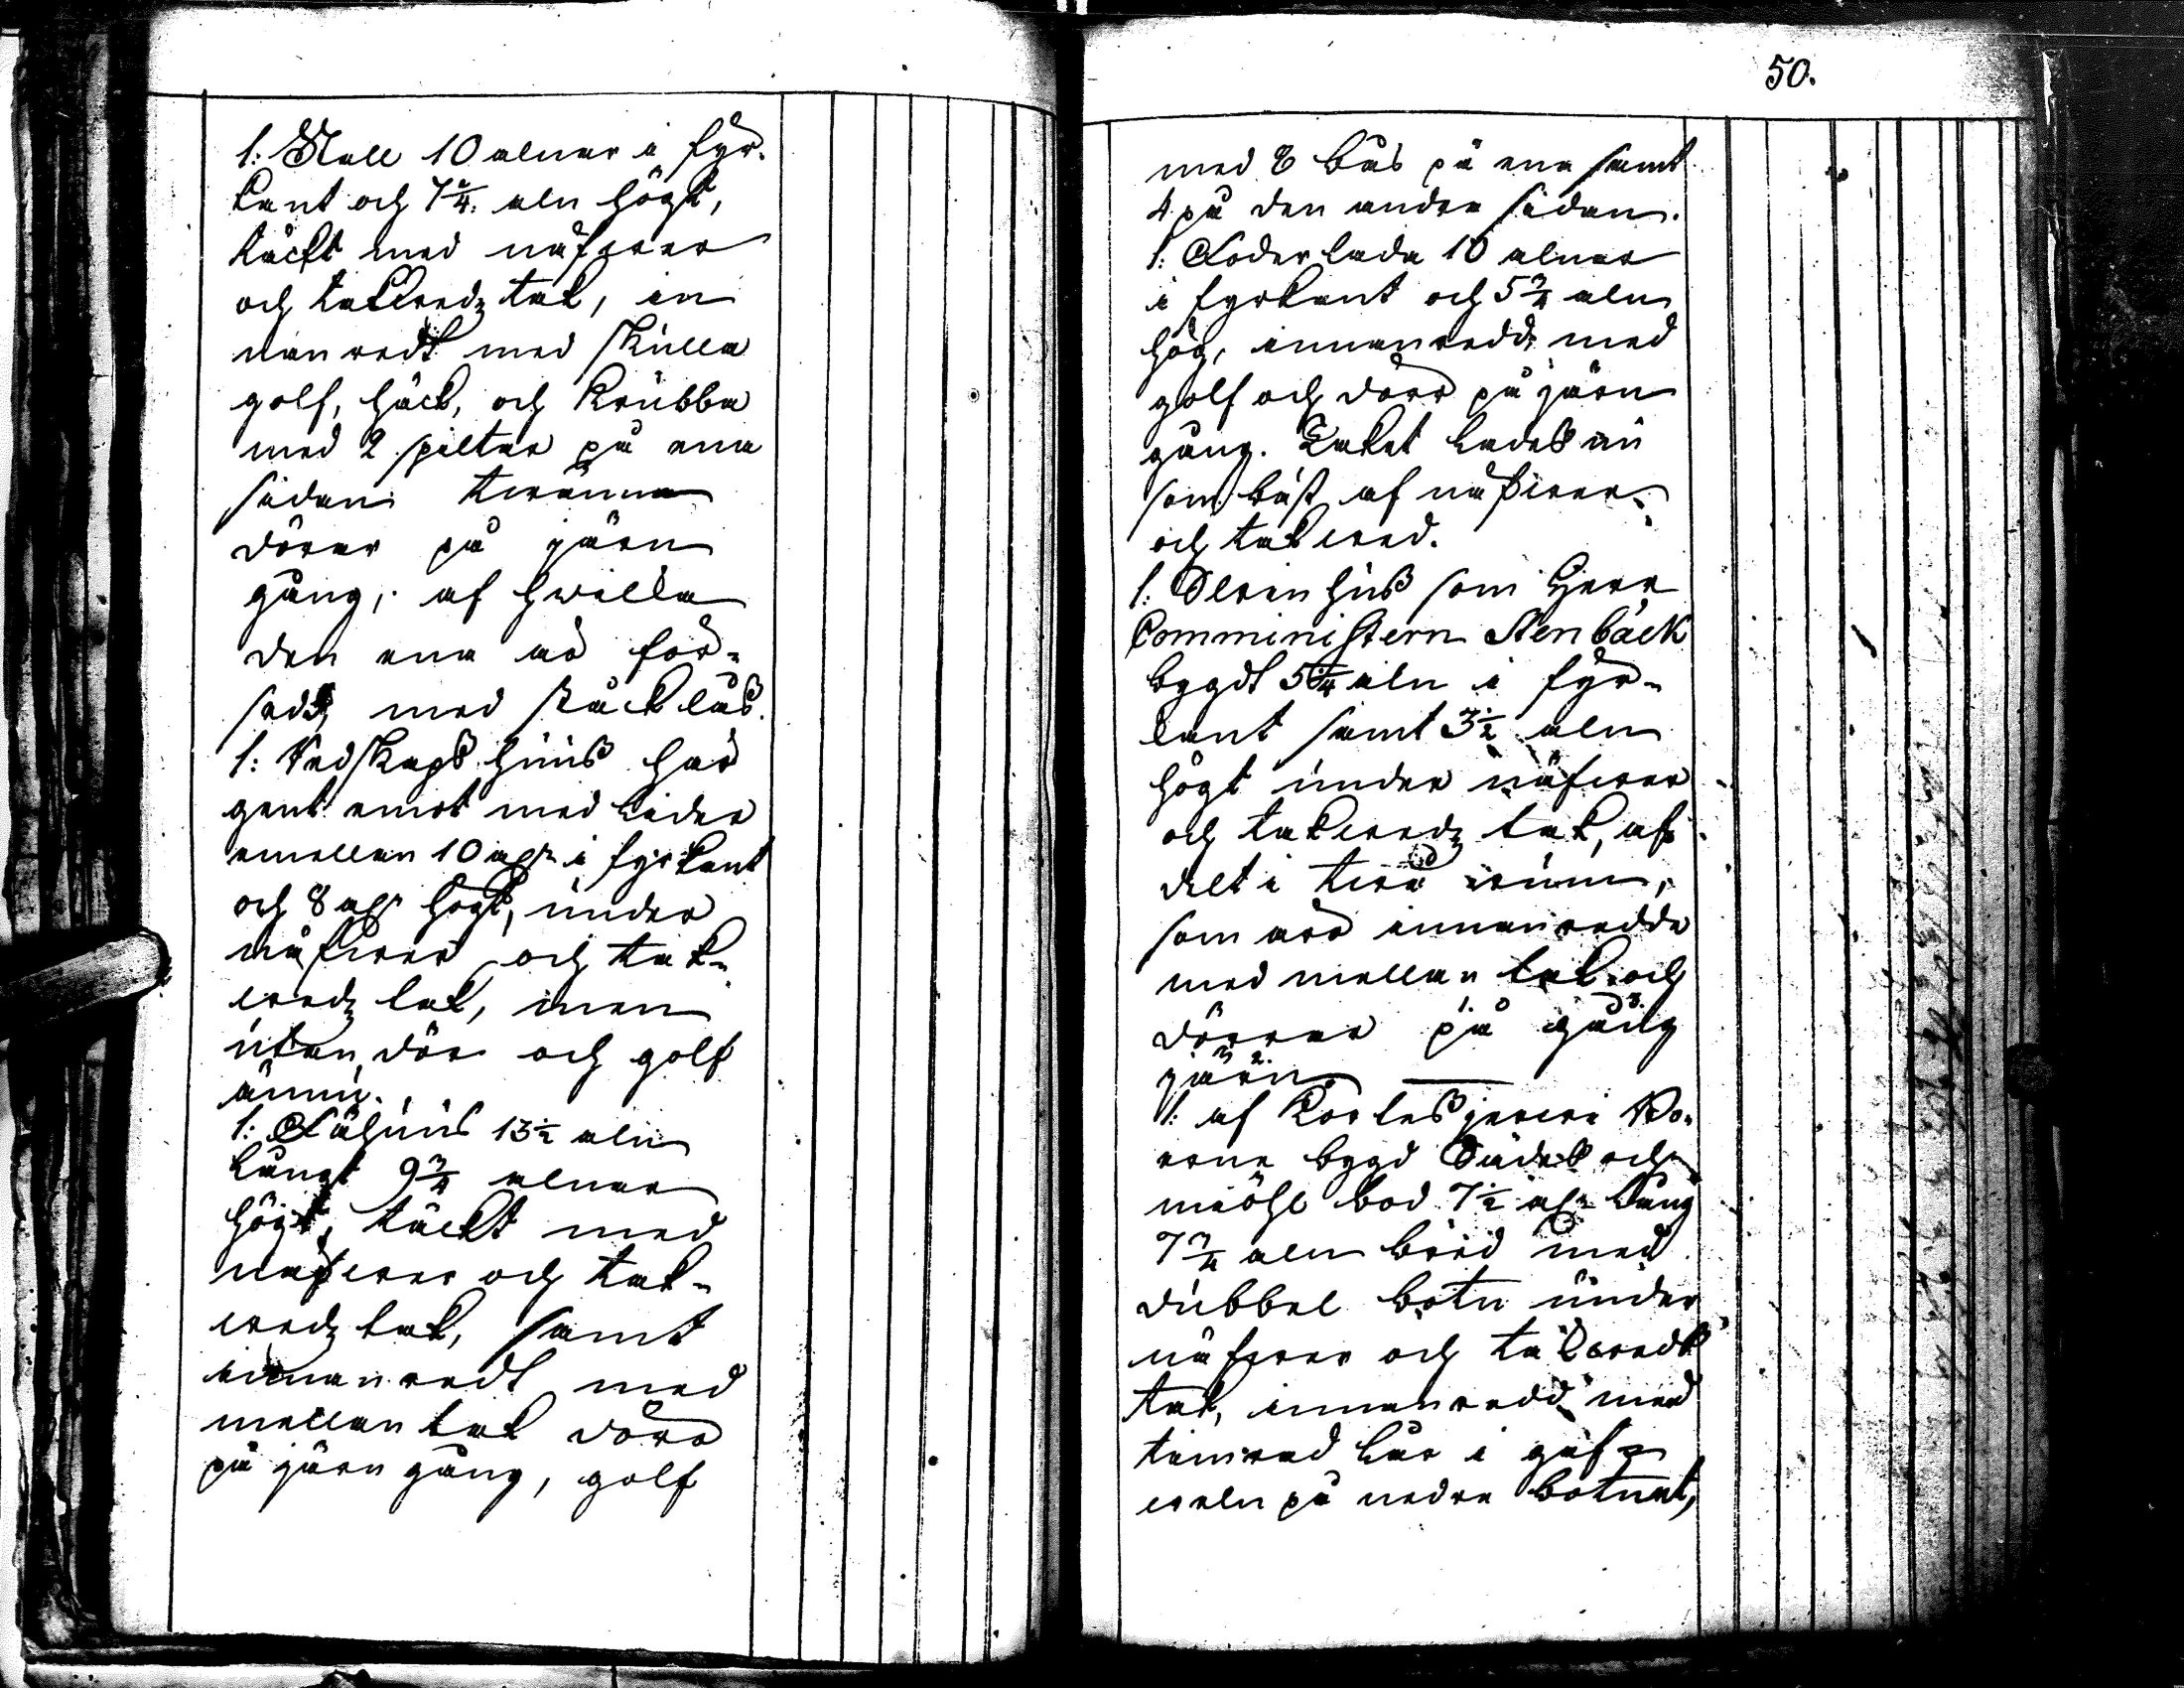 1: Stall 10 alnar i fyr-
kant och 7 3/4: aln högt,
täckt med näfwer
och takwedz tak, in
nanredt med skulla
golf, häck, och krubba
med 2 spiltar på ena
sidan twänne
dörar på järn
gång, af hwilka
den ena är för-
sedd med stäcklås.
1: Redskaps huus här
gent emot med lider
emellan 10 alr i fyrkant
och 8 alr högt, under
näfwer och tak-
wedz tak, men
utan dör och golf
ännu.
1: Fähuus 13 1/2 aln
långt 9 3/4 alnar
högt, täckt med
näfwer och tak-
wedz tak, samt
innanredt med
mellantak dörr
på järn gång, golf
50.
med 8 bås på ena samt
4 på den andra sidan.
1: Foder lada 10 alnar
i fyrkant och 5 3/4 aln
hög, innanredd med
golf och dörr på järn
gång. Taket lades nu
som bäst af näfwer
och takwed.
1: Swin hus som Herr
Comministern Stenbäck
bygdt 5 1/4 aln i fyr-
kant samt 3 1/2 aln
högt under näfwer
och takwedz tak, af
delt i twå rum,
som äro innanredde
med mellan tak och
dörrar på gång
järn.
1: af Kortesjerwi Bo-
erne bygd Sädes och
miöhl bod 7 1/2 alr lång
7 3/4 aln bred med
dubbel botn under
näfwer och takwedz
tak, innanredd med
timrad lår i gaf-
weln på nedra botnet,